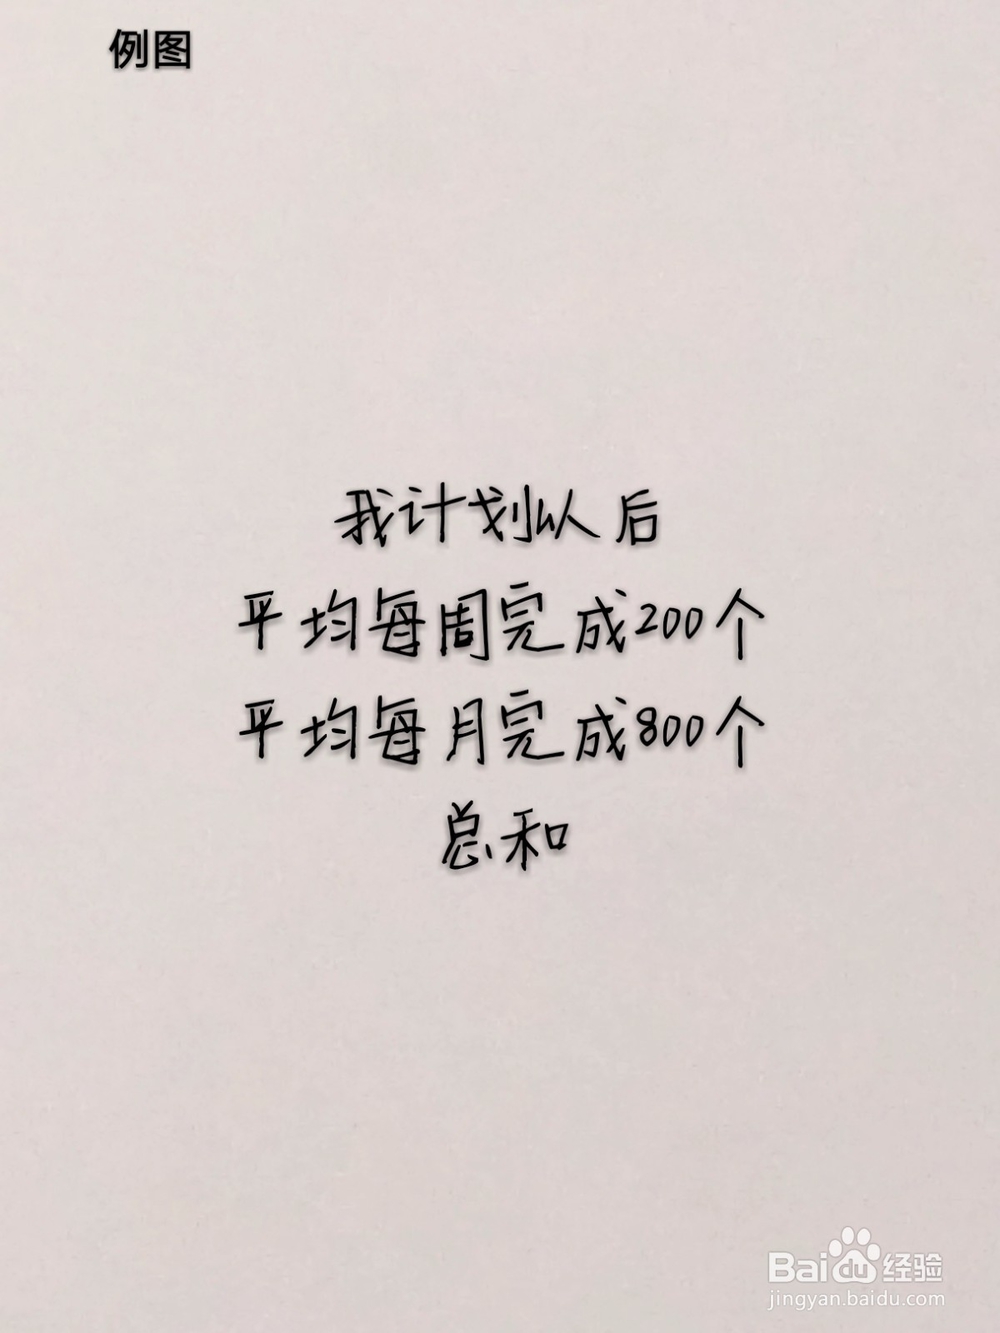 例图
我计划以后
平均每周完成200个
平均每月完成800个
总和
Baidu经验
jingyan.baidu.com